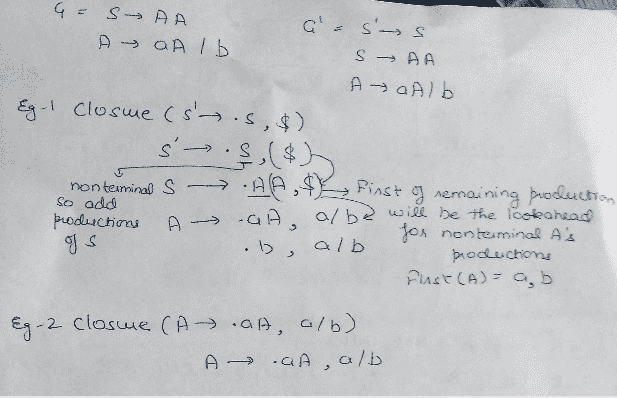 G = S → AA
A → aA / b
G' = S' → S
S → AA
A → aA/b
Eg-1 Closure (S' → .S, $)
S' → .S, ($)
nonterminal
so add
productions
of S
S → .A(A, $)
A → .aA, a/b
.b, a/b
First of remaining production
will be the lookahead
for nonterminal A's
productions
First(A) = a, b
Eg-2 Closure (A → .aA, a/b)
A → .aA, a/b